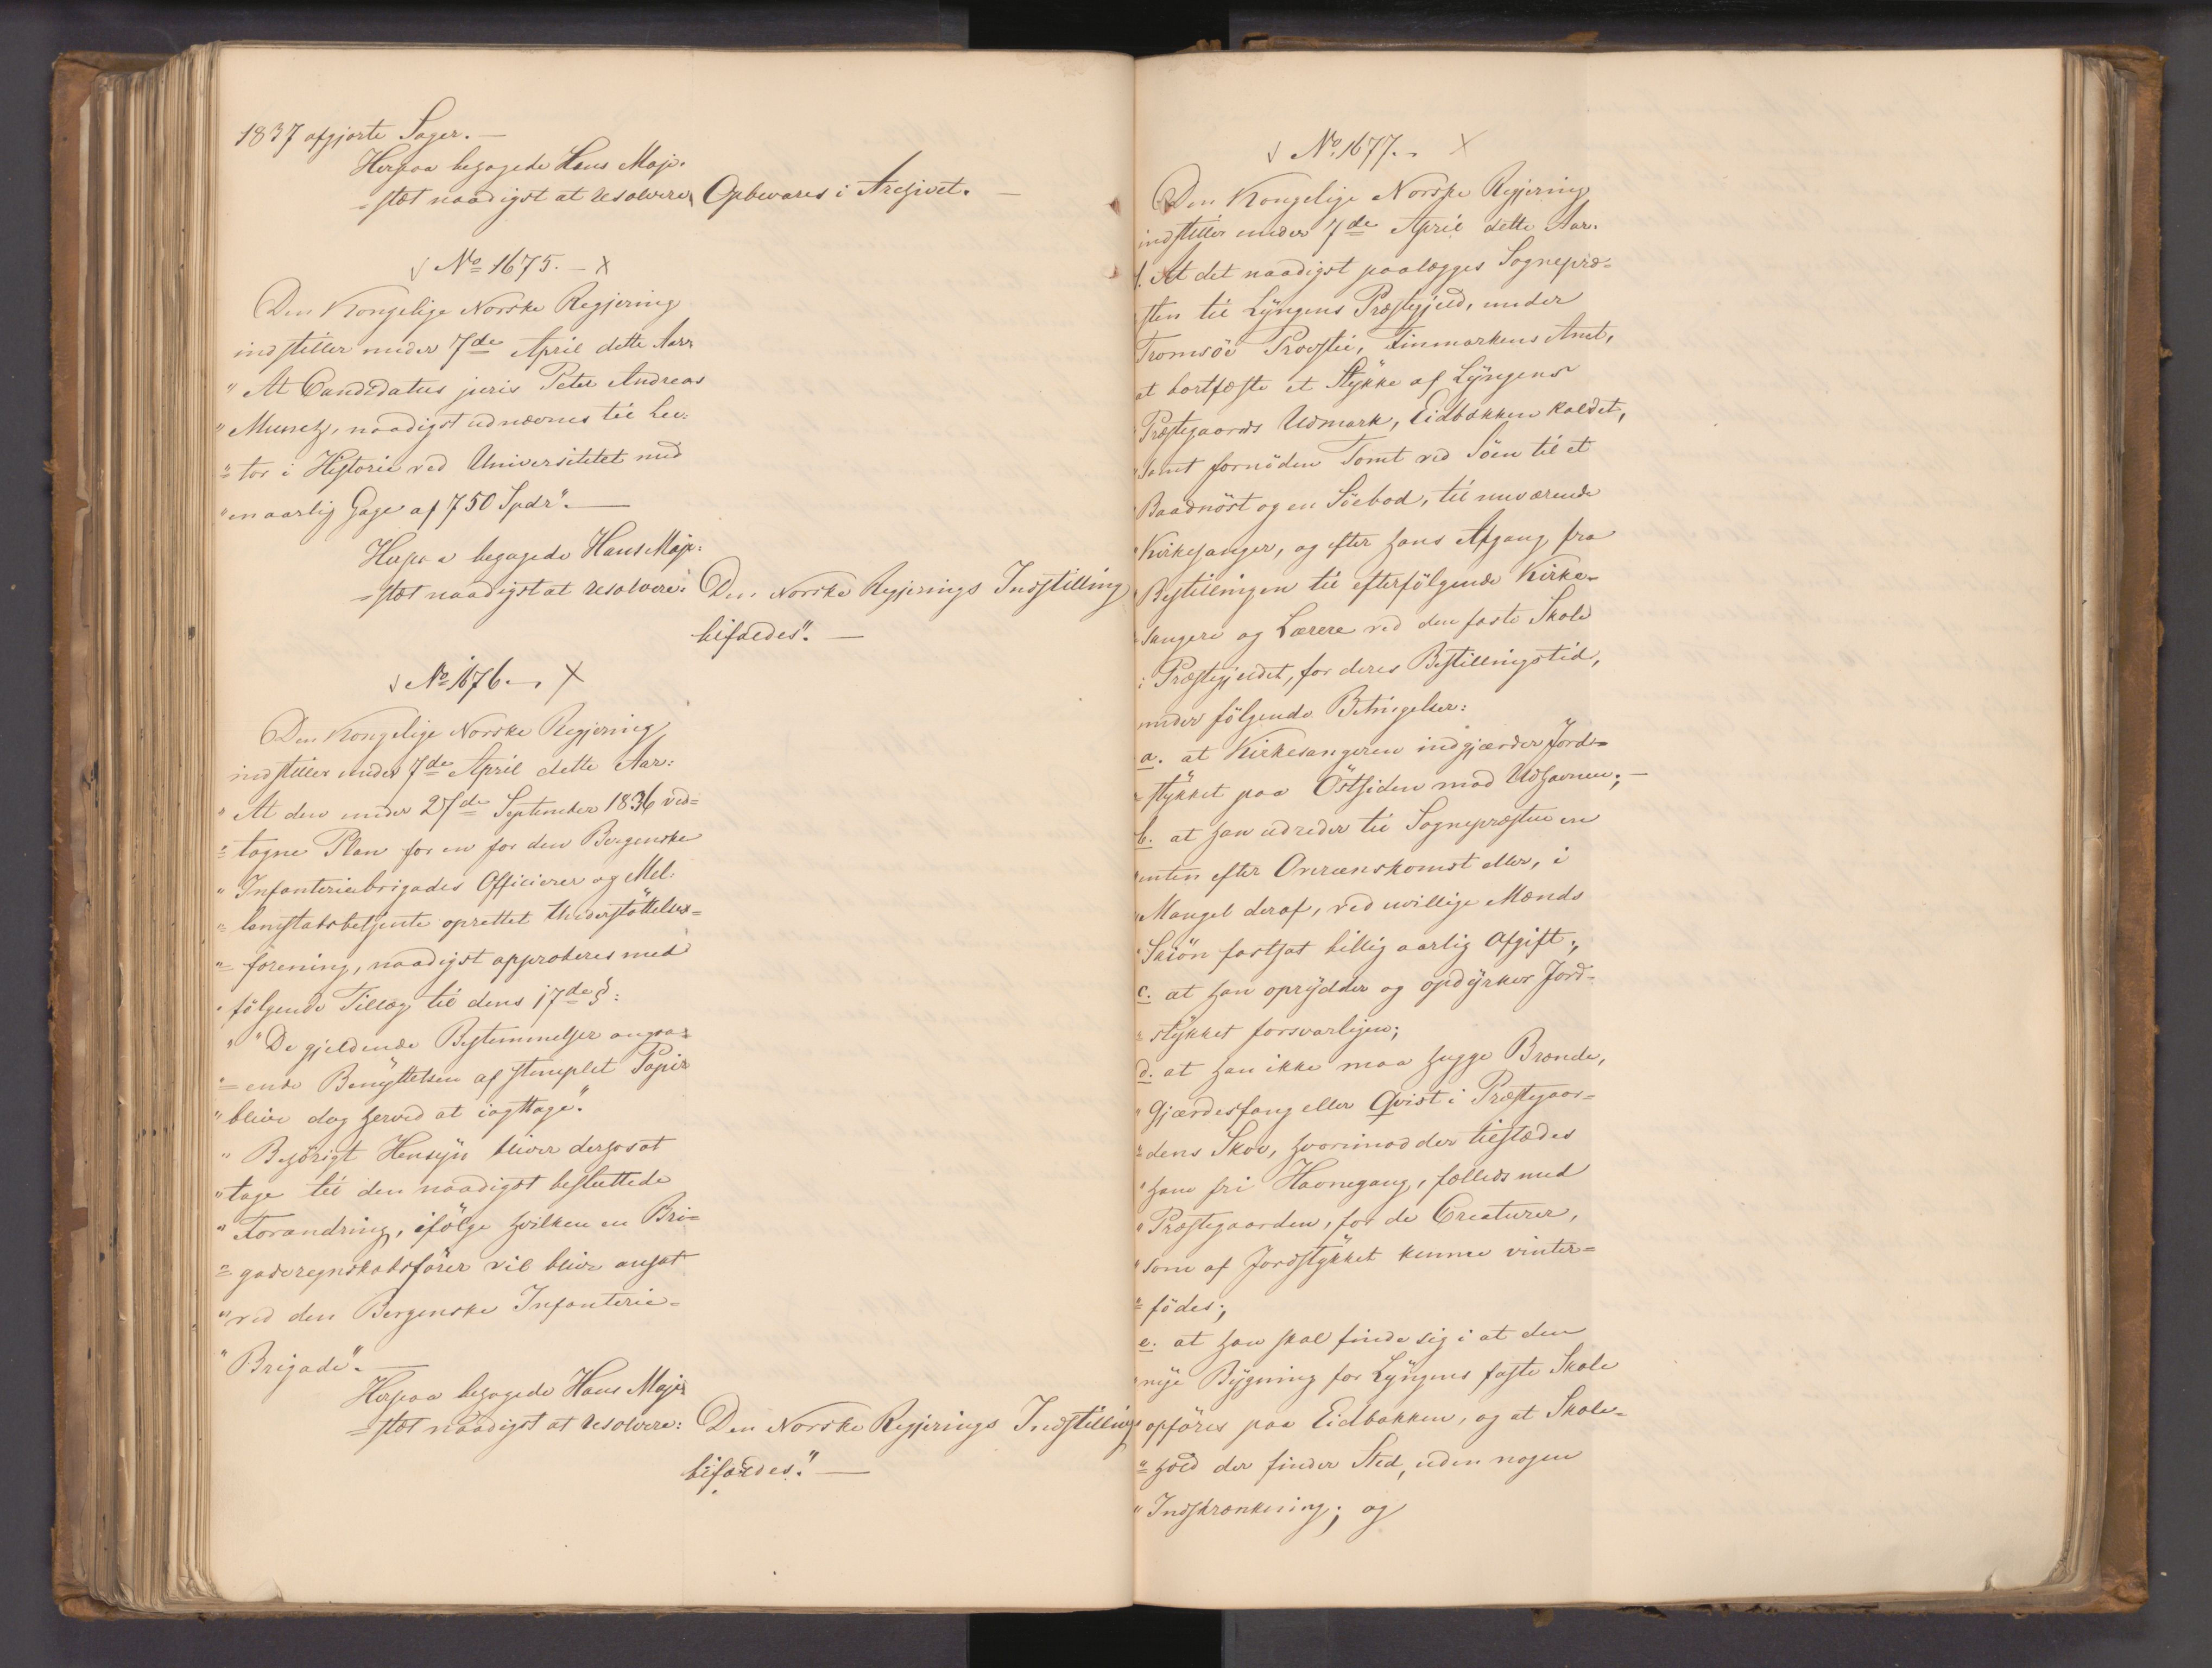 1837 afgjorte Sager. —
Herpaa behagede Hans Maje-
=stæt naadigst at resolvere: Opbevares i Archivet. —
№ 1675. — x
Den Kongelige Norske Regjering
indstiller under 7de April dette Aar:
" At Candidatus juris Peter Andreas
" Munch, naadigst udnævnes til Lec-
"=tor i Historie ved Universitetet med
"en aarlig Gage af 750 Spdr". —
Herpaa behagede Hans Maje-
=stæt naadigst at resolvere: Den Norske Regjerings Indstilling
bifaldes". —
№ 1676. — x
Den Kongelige Norske Regjering
indstiller under 7de April dette Aar:
" At den under 27de September 1836 ved=
"=tagne Plan for en for den Bergenske
" Infanteriebrigades Officierer og Mel-
"=lemstabsbetjente oprettet Understöttelses=
"=forening, naadigst approberes med
" fölgende Tillæg til dens 17de §:
" "De gjeldende Bestemmelser angaa=
"=ende Benÿttelsen af stemplet Papir
" blive dog herved at iagttage".
" Behörigt Hensÿn bliver derhos at
" tage til den naadigst besluttede
" Forandring, ifölge hvilken en Bri=
"=gaderegnskabsförer vil blive ansat
" ved den Bergenske Infanterie-
" Brigade". —
Herpaa behagede Hans Maje-
=stæt naadigst at resolvere: Den Norske Regjerings Indstilling
bifaldes." —
№ 1677. x
Den Kongelige Norske Regjering
indstiller under 7de April dette Aar.
1. At det naadigst paalægges Sognepræ=
sten til Lÿngens Præstegjeld, under
Tromsöe Provstie, Finmarkens Amt,
at bortfæste et Stÿkke af Lÿngens
"Præstegaards Udmark, Eidbakken kaldet,
"samt fornöden Tomt ved Söen til et
"Baadnöst og en Söebod, til nuværende
"Kirkesanger, og efter hans Afgang fra
"Bestillingen til efterfölgende Kirke=
"sangere og Lærere ved den faste Skole
"i Præstegjeldet, for deres Bestillingstid,
under fölgende Betingelser:
a. at Kirkesangeren indgjærder Jord=
"=stÿkket paa Östsiden mod Udhavnen; —
b. at han udreder til Sognepræsten en
"enten efter Overænskomst eller, i
"Mangel deraf, ved uvillige Mænds
"Skiön fastsat billig aarlig Afgift;
c. at han oprÿdder og opdÿrker Jord-
"=stÿkket forsvarligen;
d. at han ikke maa hugge Brænde,
" Gjærdesfang eller Qvist i Præstegaar=
"=dens Skov, hvorimod der tilstædes
" ham fri Havnegang, fælleds med
" Præstegaarden, for de Creaturer,
" som af Jordstÿkket kunne vinter=
"=födes;
e. at han skal finde sig i at den
"nÿe Bÿgning for Lÿngens faste Skole
opföres paa Eidbakken, og at Skole-
"=hold der finder Sted, uden nogen
" Indskrænkning; og